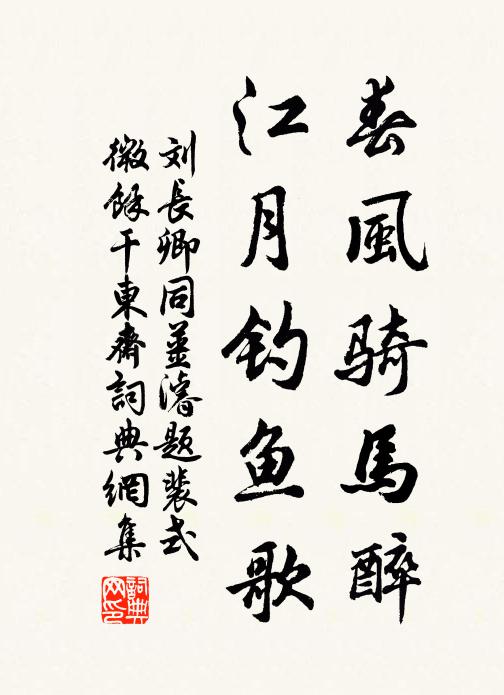 春風骑馬醉
江月钓鱼歌
刘長卿同姜濬题裴式
微餘干東齋詞典網集
詞典